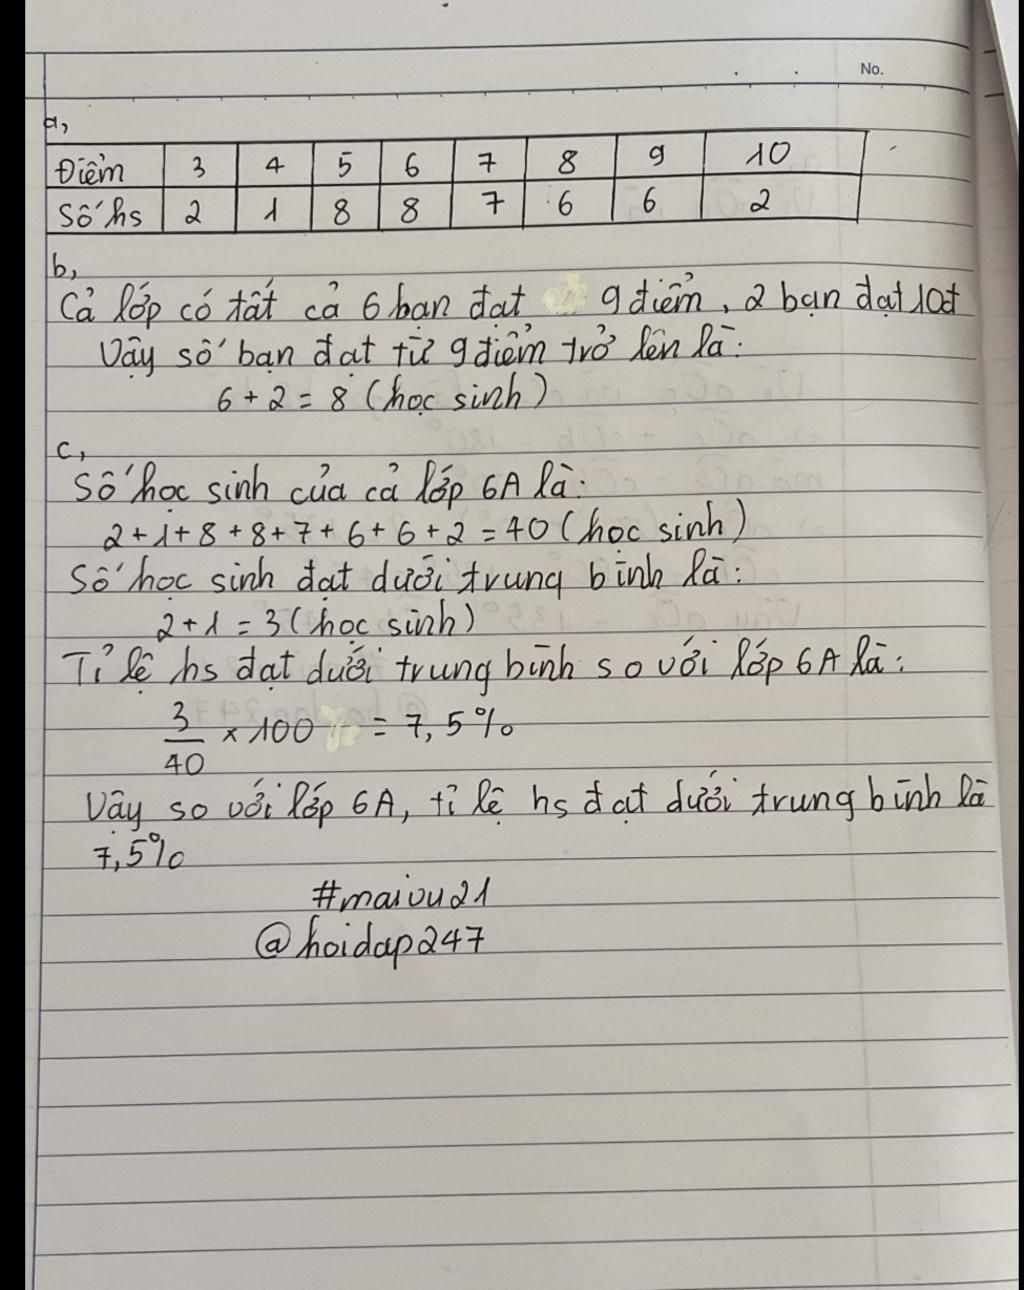 No.
a,
Điểm 3 4 5 6 7 8 9 10
Số hs 2 1 8 8 7 6 6 2
b,
Cả lớp có tất cả 6 bạn đạt 9 điểm, 2 bạn đạt 10đ
Vậy số bạn đạt từ 9 điểm trở lên là:
6 + 2 = 8 (học sinh)
c,
Số học sinh của cả lớp 6A là:
2+1+8+8+7+6+6+2 = 40 (học sinh)
Số học sinh đạt dưới trung bình là:
2+1 = 3 (học sinh)
Tỉ lệ hs đạt dưới trung bình so với lớp 6A là:
3/40 × 100 = 7,5%
Vậy so với lớp 6A, tỉ lệ hs đạt dưới trung bình là
7,5%
#maivu21
@hoidap247